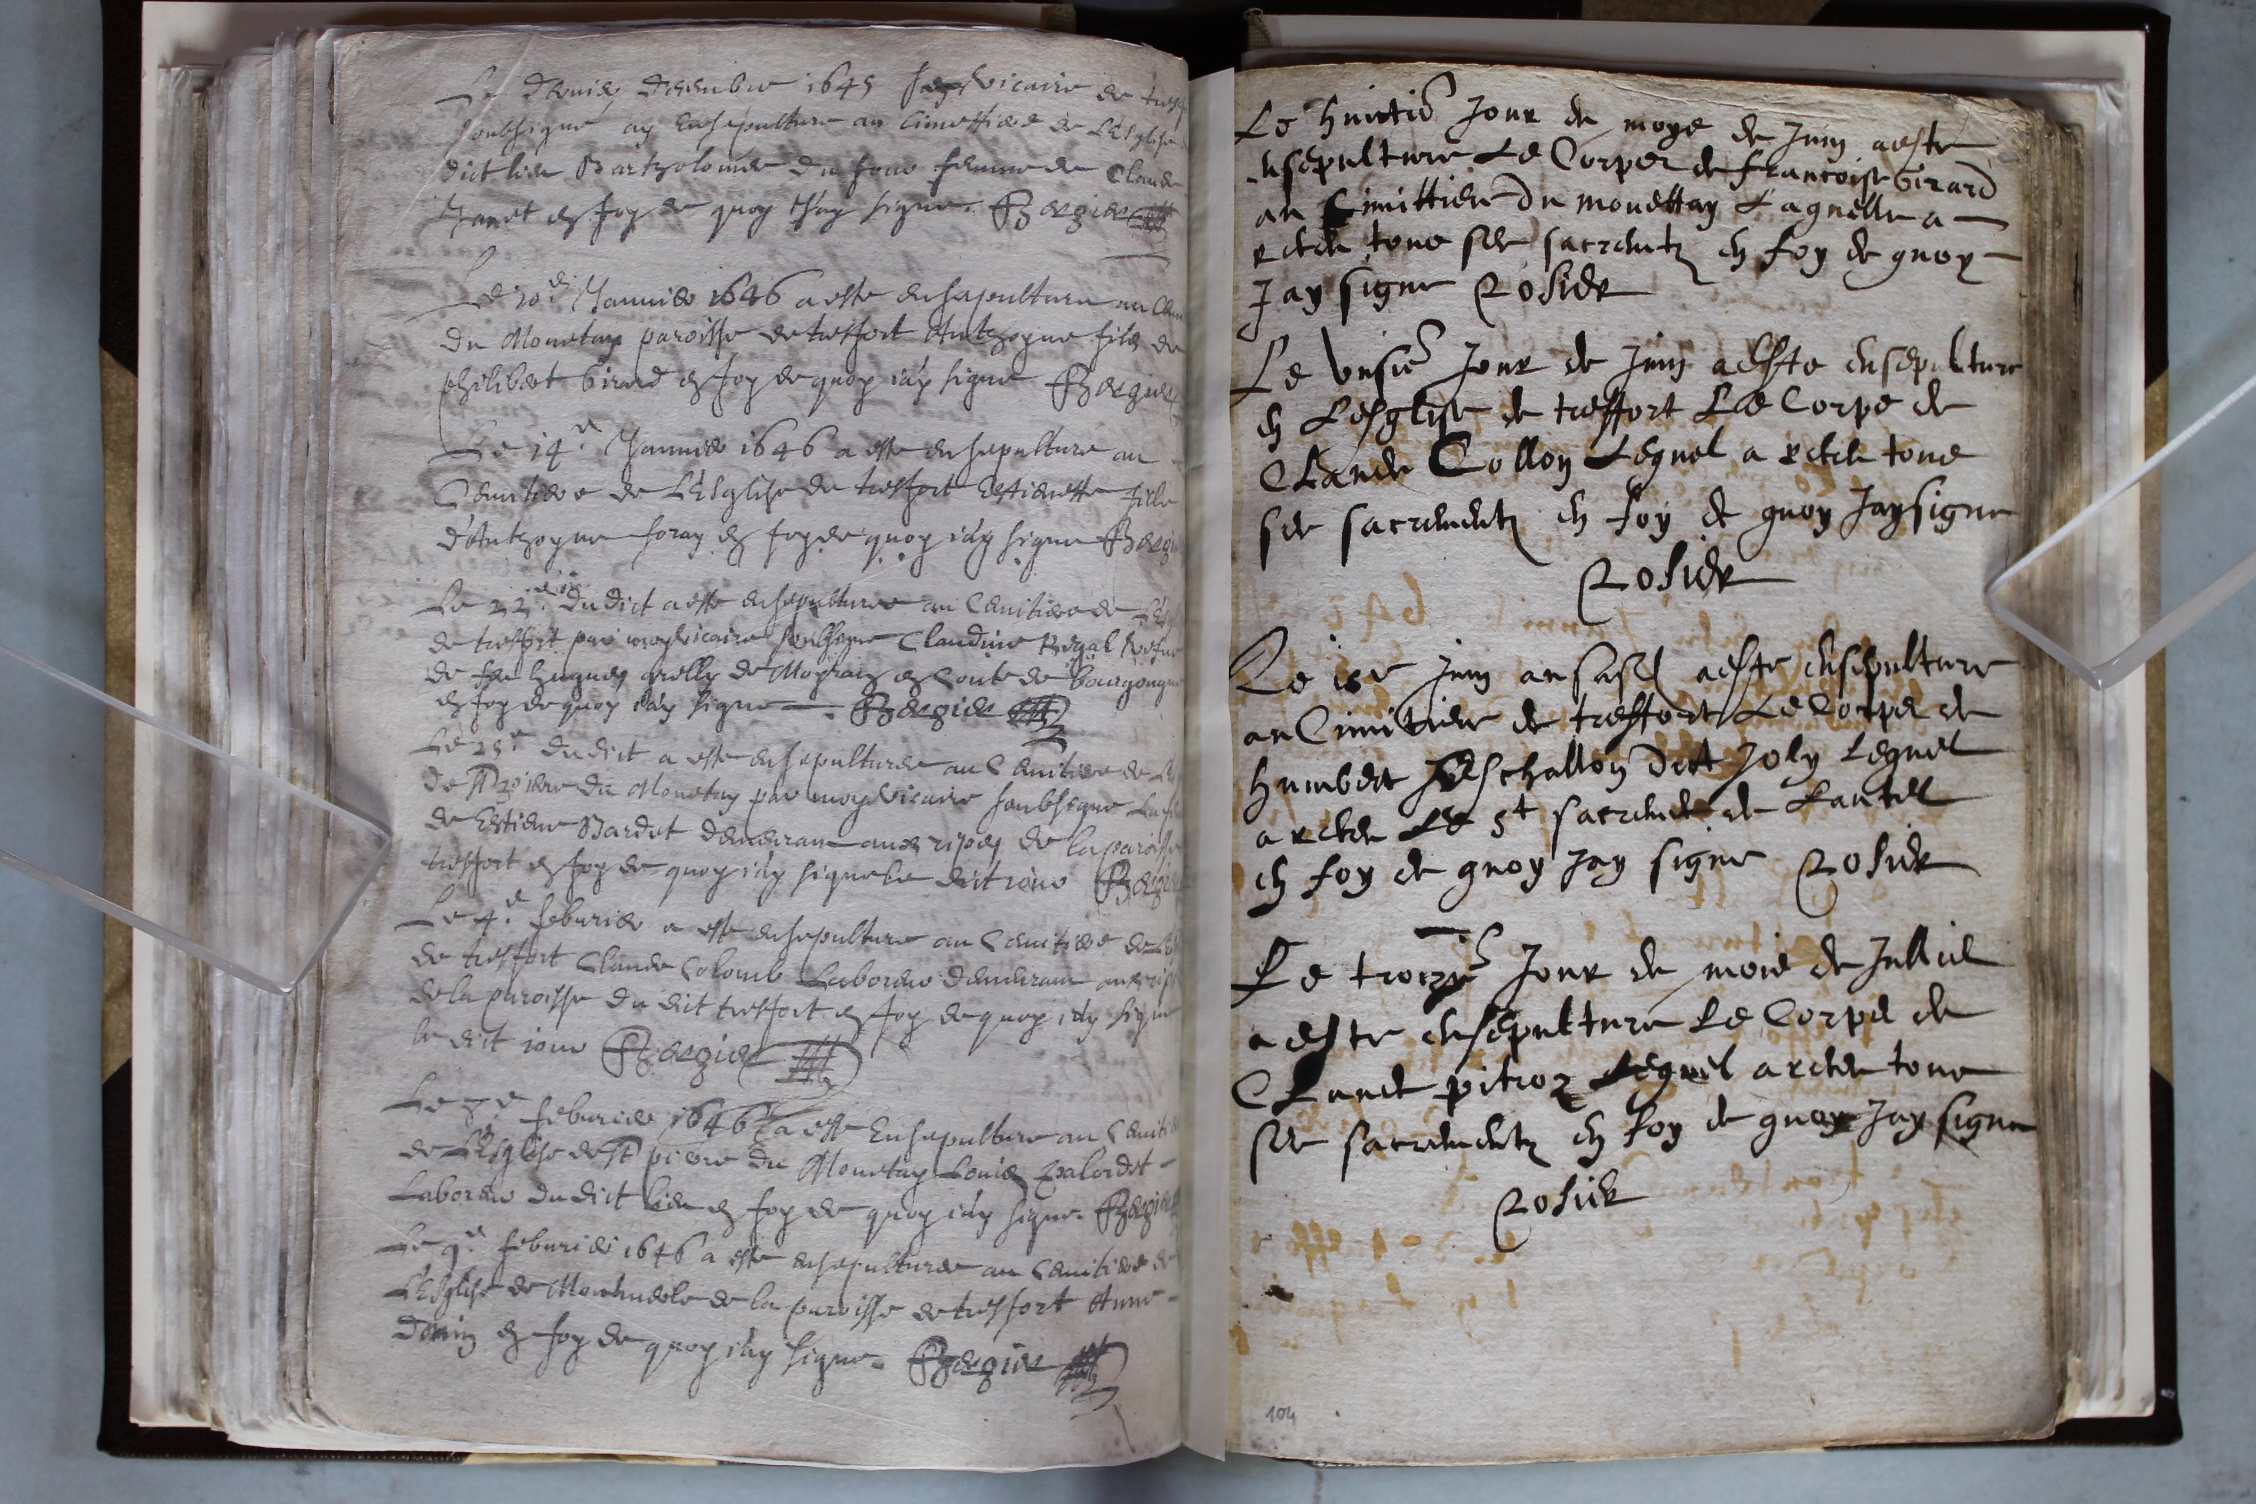 Le dernier decembre 1645 Je vicaire de tresfort
soubsigné ay ensepulture au cimettiere de L'Esglise
dict lieu Bartholomee du four femme de Claude
Janet en foy de quoy J'ay signe. Bergier
Le 10e Jannier 1646 a este ensepulture au
du Monetay paroisse de tresfort Anthoyne filz de
philibert Girard en foy de quoy i'ay signe Bergier
Le 14e Jannier 1646 a este ensepulture au
Cemitiere de L'Esglise de tresfort Estienette fille
d'Anthoyne foray en foy de quoy i'ay signe
Le 22e du dict a este ensepulturee au Cemitiere de
de tresfort par moy vicaire soubsigne Claudine Regal vefue
de feu hugues grelly de Moyran en Conte de bourgongne
en foy de quoy i'ay signe Bergier
Le 25e du dict a este ensepulturee au Cemitiere de
de St pierre du Monetay par moy vicaire soubsigne
de Estiene Bardet demeurant aux ripes de la paroisse
tresfort en foy de quoy i'ay signe le dict iour
Le 4e feburier a este ensepulture au Cemitiere de
de tresfort Claude Colomb Laboreur demeurant aux
de la paroisse du dit tresfort en foy de quoy i'ay signe
le dit iour Bergier
Le 7e feburier 1646 a este Ensepulture au
de L'Esglise de St pierre du Monetay Louis
Laboreur du dict lieu en foy de quoy i'ay signe. Bergier
Le 9e feburier 1646 a este ensepulturee au Cemitiere de
L'Esglise de de la paroisse de tresfort Anne
en foy de quoy i'ay signe. Bergier
Le huictie Jour du moys de Juin aeste
ensepulturee Le Corps de francoise Girard
au Cimittiere Du monettay Laquelle a
receu tous ses sacrementz en foy de quoy
Jay signe Rosier
Le unsie Jour de Juin aeste ensepulture
en Lesglise de treffort Le Corps de
Claude Collon Lequel a receu tous
ses sacrementz en foy de quoy Jay signe
Rosier
Le Juin an susd aeste ensepulture
au Cimitiere de treffort Le Corps de
humbert Eschallon Dict Joly Lequel
a receu Le St sacrement de Lautel
en foy de quoy Jay signe Rosier
Le Jour du mois de Jullie
aeste ensepulture Le Corps de
Claude pitroz Lequel a receu tous
ses sacrementz en foy de quoy Jay signe
Rosier
104